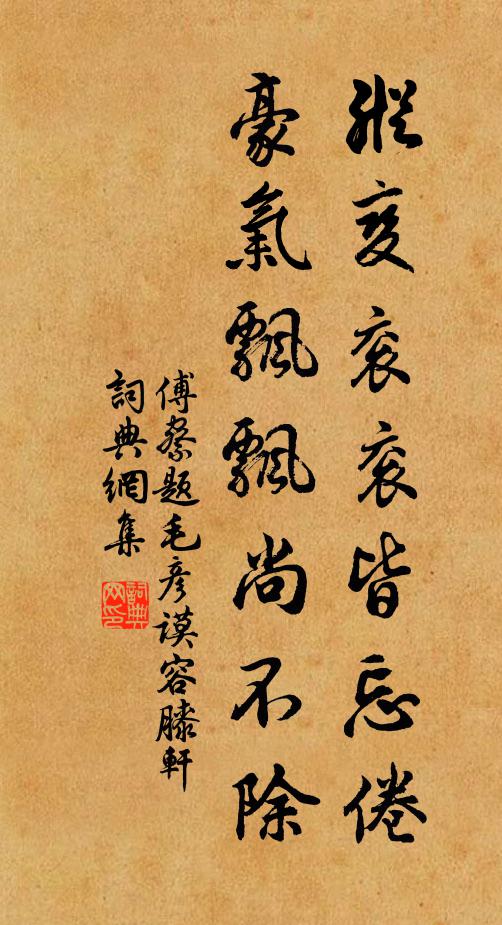 衮衮皆忘倦
豪氣飄飄尚不除
傅察题毛彦謨容膝軒
詞典網集
詞典
网印